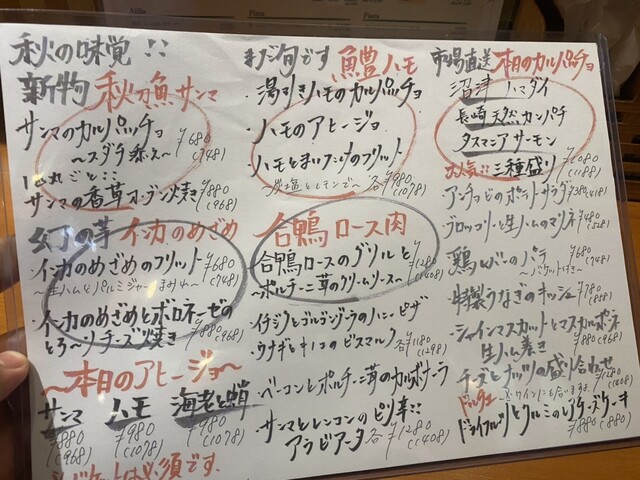 秋の味覚!!
新物 秋刀魚サンマ
サンマのカルパッチョ ¥680
〜スダチ添え〜 (748)
1匹丸ごと!!
サンマの香草オーブン焼き ¥880
(968)
幻の芋 インカのめざめ
・インカのめざめのフリット ¥680
〜生ハムとパルミジャーノまみれ〜 (748)
・インカのめざめとボロネーゼの
とろ〜りチーズ焼き ¥880
(968)
〜本日のアヒージョ〜
サンマ ハモ 海老と蛸
¥880 ¥980 ¥980
(968) (1078) (1078)
バケットは必須です.
まだ旬です 鱧ハモ
・湯引きハモのカルパッチョ
・ハモのアヒージョ
・ハモとまいたけのフリット
〜岩塩とレモンで〜 各¥980
(1078)
合鴨ロース肉
合鴨ロースのグリルと ¥1280
〜ポルチーニ茸のクリームソース〜 (1408)
・イチジクとゴルゴンゾーラのハニーピザ
・ウナギとキノコのビスマルク 各¥1180
(1298)
・ベーコンとポルチーニ茸のカルボナーラ
・サンマとレンコンのピリ辛!!
アラビアータ 各¥1280
(1408)
市場直送 本日のカルパッチョ
沼津 ハマダイ
長崎 天然カンパチ
タスマニアサーモン
お人気!! 三種盛り ¥1080
(1188)
・アンチョビのポテトサラダ ¥380(418)
・ブロッコリーと生ハムのマリネ ¥480
(528)
・鶏レバーのパテ ¥680
〜バケット付き〜 (748)
・特製うなぎのキッシュ ¥780
(858)
・シャインマスカットとマスカルポーネ
生ハム巻き ¥880(968)
・チーズとナッツの盛り合わせ
ワインに合います ¥1280
(1408)
ドルチェ
ドライフルーツとクルミのレアチーズケーキ
¥880(880)